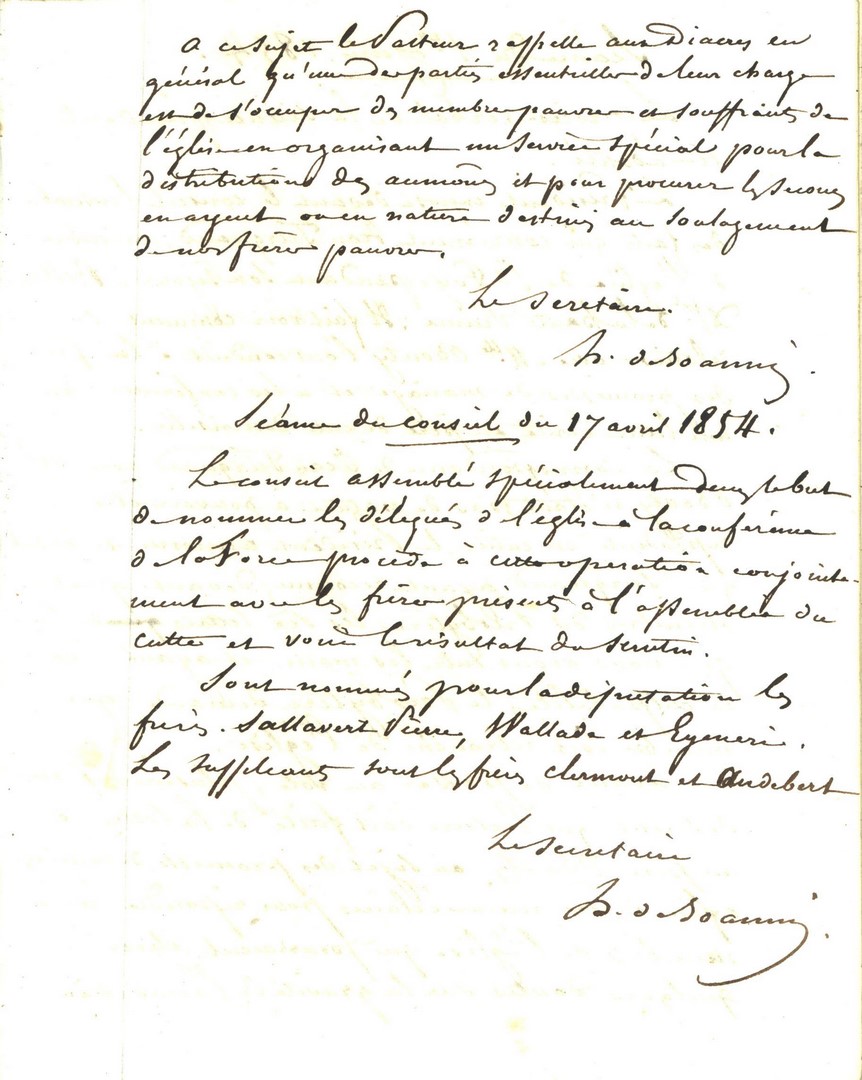 A ce sujet le Pasteur rappelle aux Diacres en
général qu'une des parties essentielles de leur charge
est de s'occuper des membres pauvres et souffrants de
l'église en organisant un service spécial pour la
distribution des aumônes et pour procurer les secours
en argent ou en nature destinés au soulagement
de nos frères pauvres.
Le secrétaire.
h. de Joannis.
Séance du conseil du 17 avril 1854.
Le conseil assemblé spécialement dans le but
de nommer les délégués de l'église à la conférence
de la Force procède à cette opération conjointe-
ment avec les frères présents à l'assemblée du
culte et voici le résultat du scrutin.
Sont nommés pour la députation les
frères. Sallavert Pierre, Wallada et Eymeri.
Les suppléants sont les frères Clermont et Audebert
Le secrétaire
h. de Joannis.